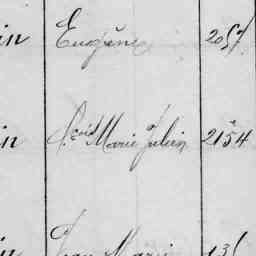 in Eugène 2057
in fçois Marie Julien 2154
in Jean Marie 135